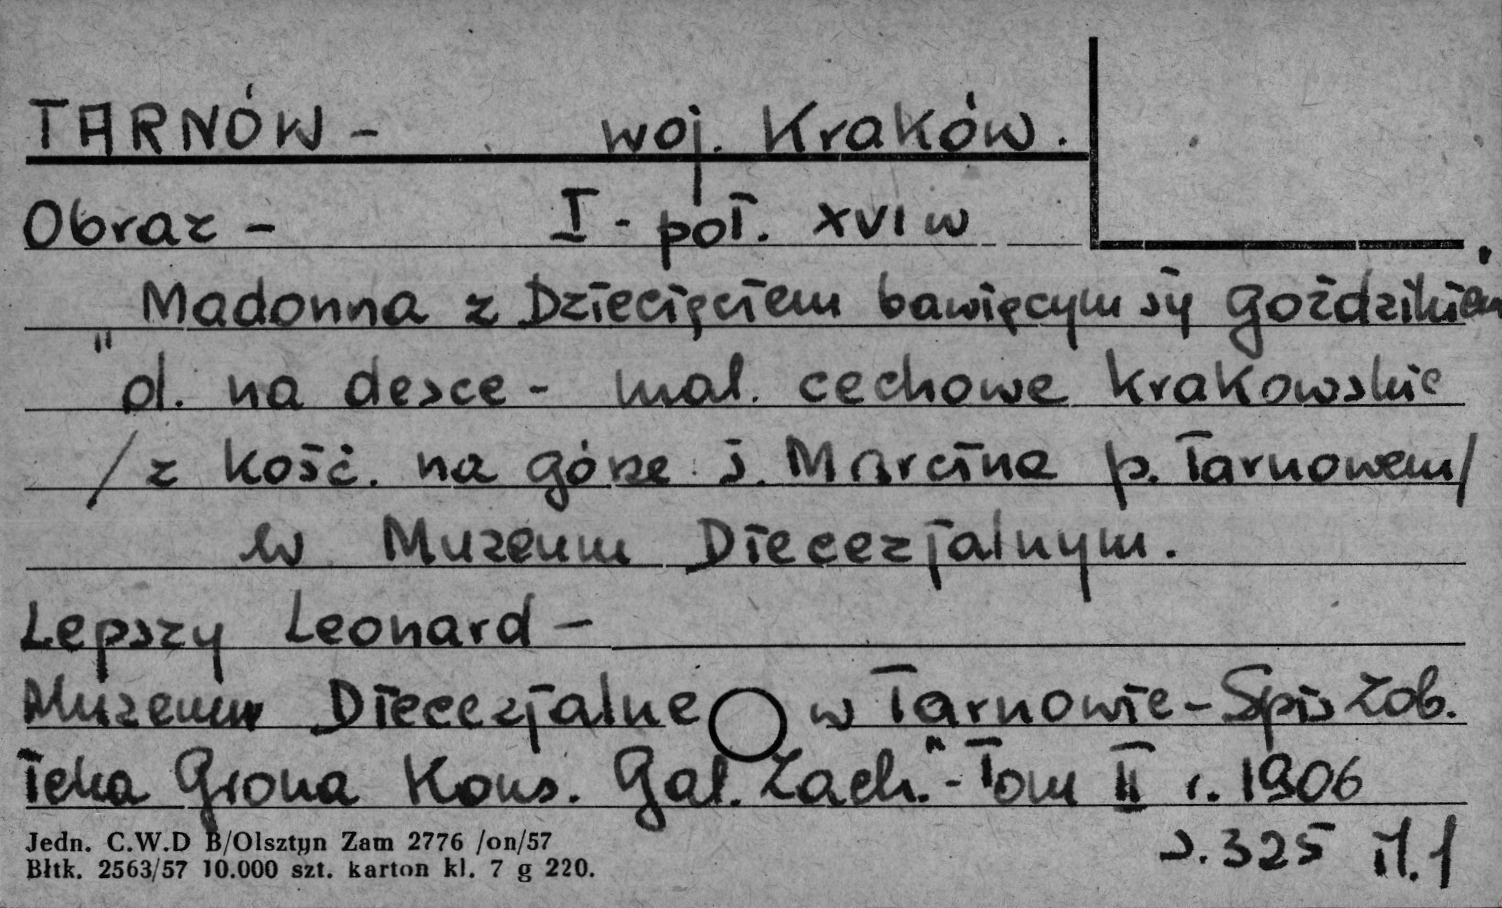 TARNÓW - woj. Kraków.
Obraz - I - poł. XVI w
Madonna z Dziecięciem bawięcym się goździkiem
" ol. na desce - mal. cechowe krakowskie
/ z kość. na górze ś. Marcina p. Tarnowem /
w Muzeum Diecezjalnym.
Lepszy Leonard -
Muzeum Diecezjalne w Tarnowie - Spis Zab.
Teka Grona Kons. Gal. Zach." - Tom II r. 1906
s. 325 il. 1
Jedn. C.W.D B/Olsztyn Zam 2776 /on/57
Błtk. 2563/57 10.000 szt. karton kl. 7 g 220.